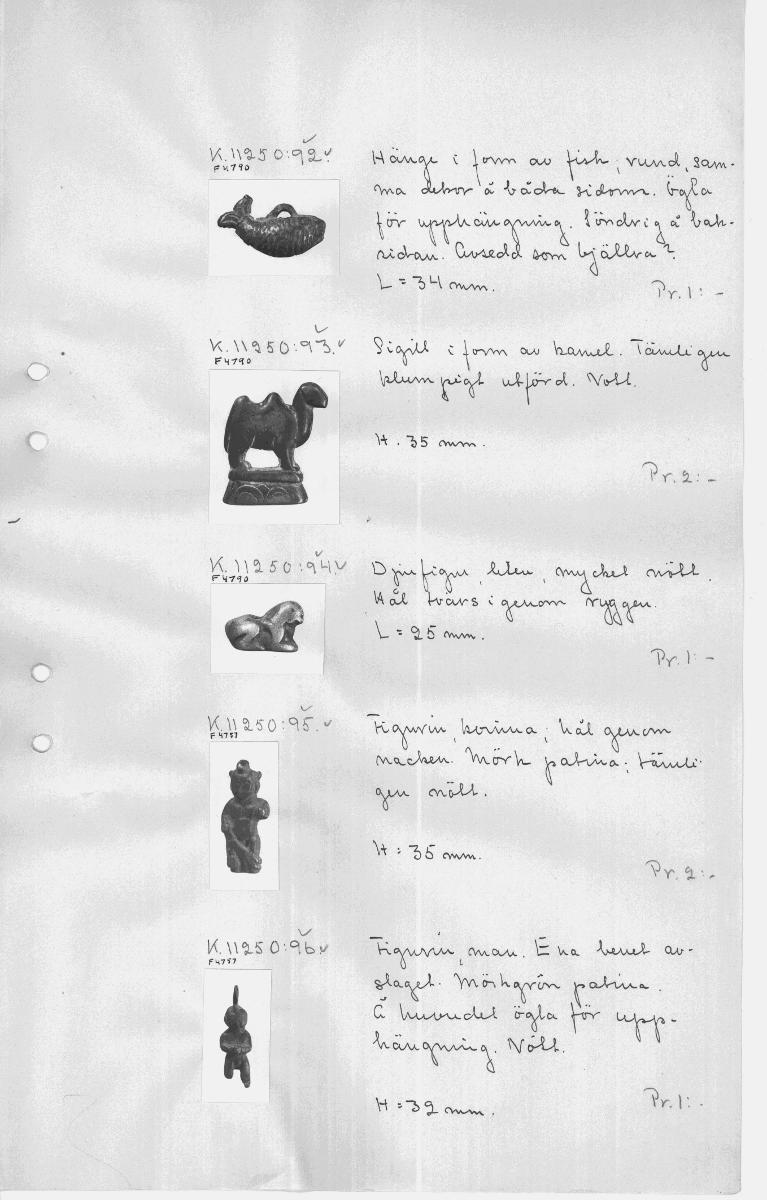 K.11250:92.
F4790
Hänge i form av fish, rund, sam-
ma dekor å båda sidorna. Ögla
för upphängning. Söndrig å bak-
sidan. Avsedd som bjällra?
L = 34 mm.
Pr.1:-
K.11250:93.
F4790
Sigill i form av kamel. Tämligen
klumpigt utförd. Nött.
H. 35 mm.
Pr.2:-
K.11250:94.
F4790
Djurfigur, liten, mycket nött.
Hål tvärs igenom ryggen.
L = 25 mm.
Pr.1:-
K.11250:95.
F4757
Figurin, kvinna; hål genom
nacken. Mörk patina; tämli-
gen nött.
H = 35 mm.
Pr.2:-
K.11250:96.
F4757
Figurin, man. Ena benet av-
slaget. Mörkgrön patina.
Å huvudet ögla för upp-
hängning. Nött.
H = 32 mm.
Pr.1:-